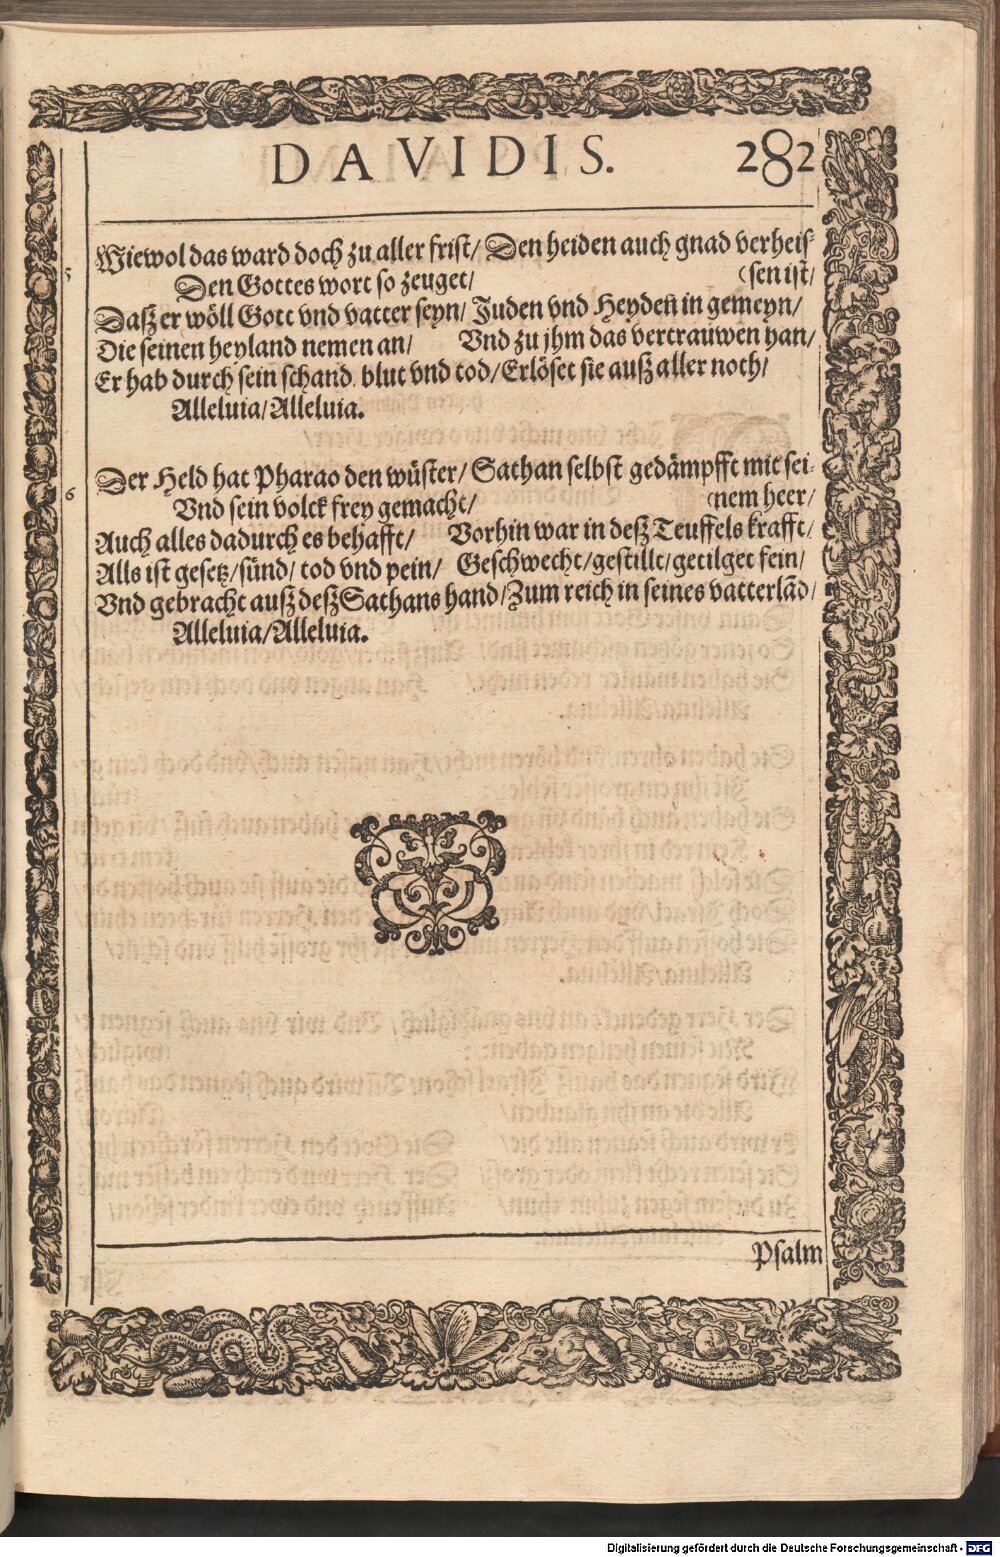 DAVIDIS. 282
Wiewol das ward doch zu aller frist/ Den heiden auch gnad verheis-
5 Den Gottes wort so zeuget/ (sen ist/
Dasz er wöll Gott vnd vatter seyn/ Juden vnd Heyden in gemeyn/
Die seinen heyland nemen an/ Vnd zu jhm das vertrauwen han/
Er hab durch sein schand, blut vnd tod/ Erlöset sie ausz aller noth/
Alleluia/Alleluia.
Der Held hat Pharao den wüster/ Sathan selbst gedämpfft mit sei-
6 Vnd sein volck frey gemacht/ (nem heer/
Auch alles dadurch es behafft/ Vorhin war in desz Teuffels krafft/
Alls ist gesetz/sünd/ tod vnd pein/ Geschwecht/gestillt/getilget fein/
Vnd gebracht ausz desz Sathans hand/Zum reich in seines vatterlãd/
Alleluia/Alleluia.
Psalm
Digitalisierung gefördert durch die Deutsche Forschungsgemeinschaft - DFG